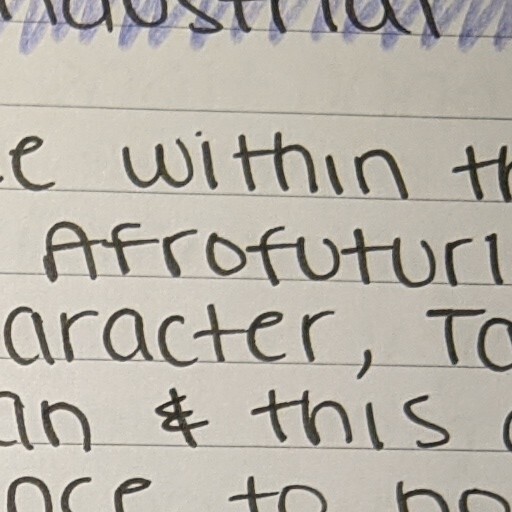 ndustrial
e within th
Afrofuturi
aracter, To
an & this
nce to no